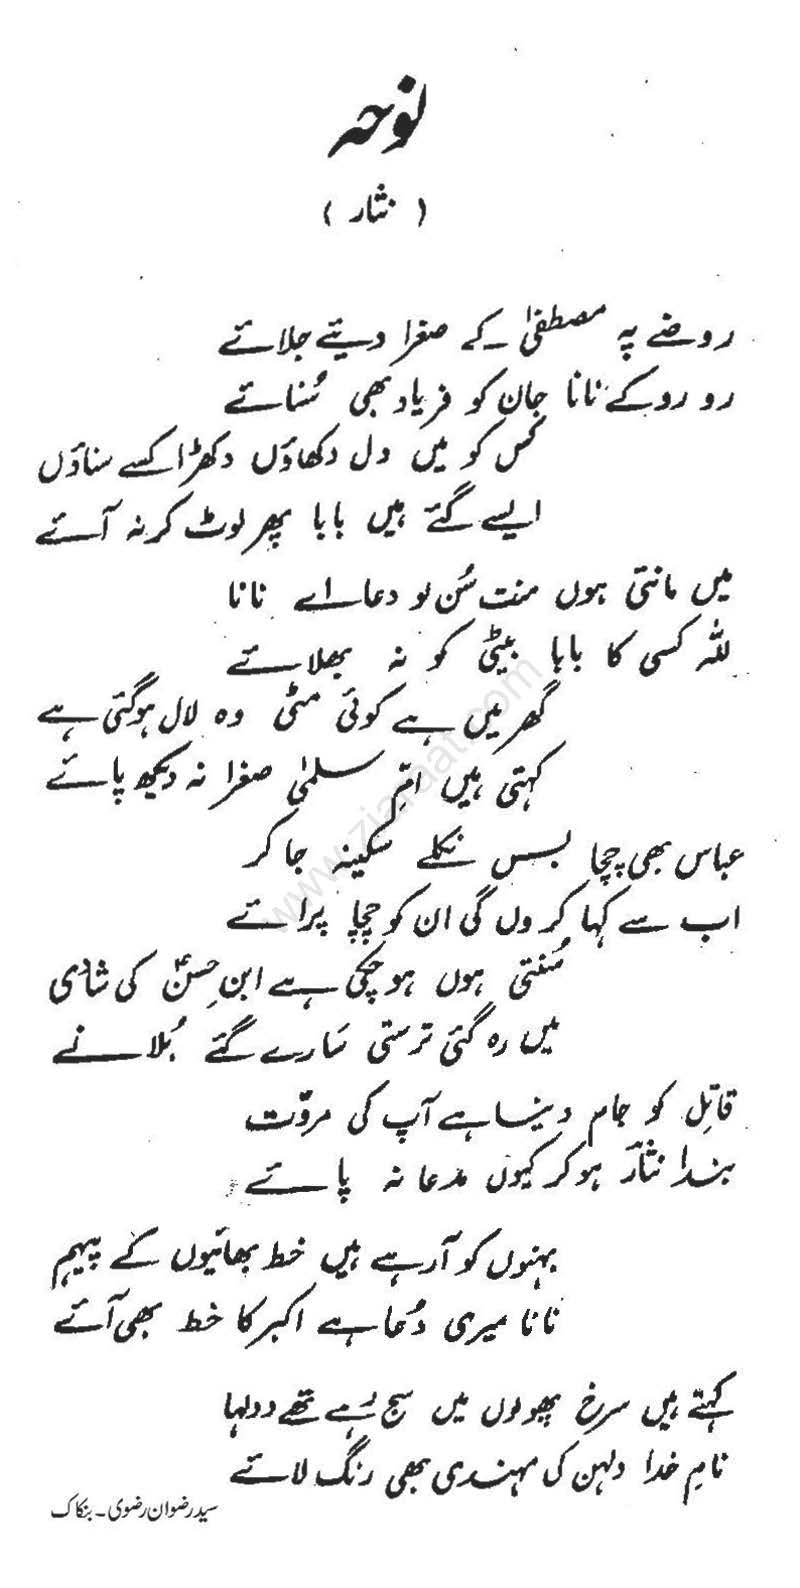 نوحہ
( نثار )
روضے پہ مصطفیٰ کے صغرا دیئے جلائے
رو رو کے نانا جان کو فریاد بھی سُنائے
کس کو میں دل دکھاؤں دکھڑا کسے سناؤں
ایسے گئے ہیں بابا پھر لوٹ کر نہ آئے
میں مانتی ہوں منت سُن لو دعا اے نانا
للہ کسی کا بابا بیٹی کو نہ بھلائے
گھر میں ہے کوئی مٹی وہ لال ہو گئی ہے
کہتی ہیں امِّ سلمیٰ صغرا نہ دیکھ پائے
عباس بھی چچا بس نکلے سکینہ جا کر
اب سے کہا کروں گی ان کو چچا پرائے
سُنتی ہوں ہو چکی ہے ابنِ حسنؑ کی شادی
میں رہ گئی ترستی سَارے گئے بُلانے
قاتِل کو جام دینا ہے آپ کی مروّت
بندا نثارؔ ہو کر کیوں مدعا نہ پائے
بہنوں کو آ رہے ہیں خط بھائیوں کے پیہم
نانا میری دُعا ہے اکبر کا خط بھی آئے
کہتے ہیں سرخ پھولوں میں سج رہے تھے دولہا
نامِ خدا دلہن کی مہندی بھی رنگ لائے
سید رضوان رضوی ۔ بنکاک
www.ziaraat.com